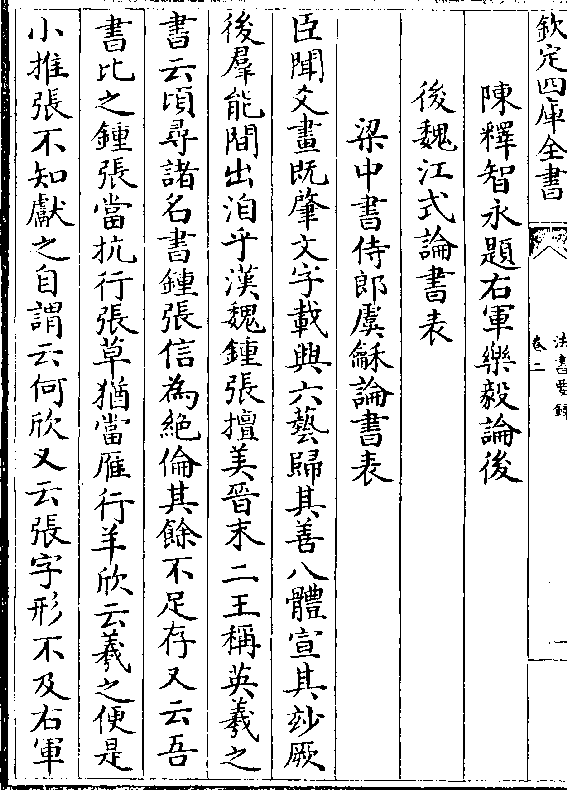 欽定四庫全書
法書要錄
卷二
陳釋智永題右軍樂毅論後
後魏江式論書表
梁中書侍郎虞龢論書表
臣聞爻畫既肇文字載興六藝歸其善八體宣其妙厥
後羣能間出洎乎漢魏鍾張擅美晉末二王稱英羲之
書云頃尋諸名書鍾張信為絕倫其餘不足存又云吾
書比之鍾張當抗行張草猶當雁行羊欣云羲之便是
小推張不知獻之自謂云何欣又云張字形不及右軍